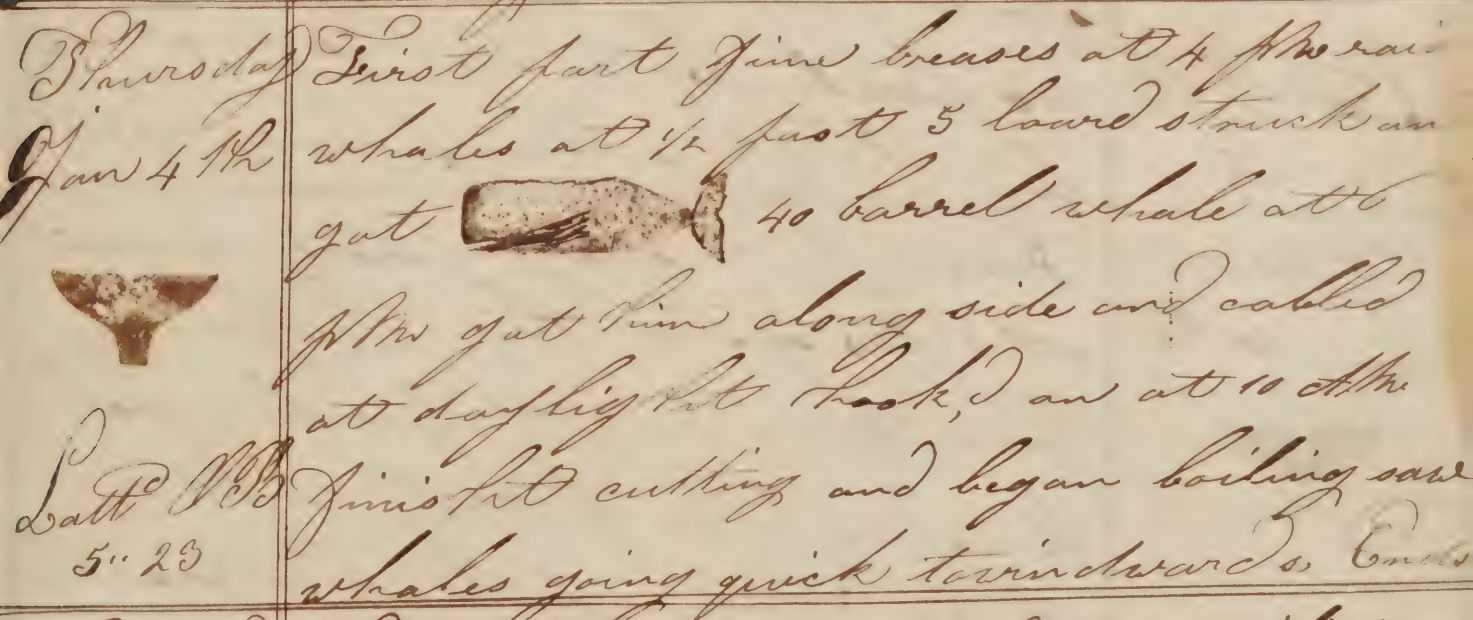 Thursday
Jan 4th
Lattd
5" 23
First part fine breases at 4 PM rai
whales at 1/2 past 5 loard struck an
got 40 barrel whale att
PM got him along side and cabled
at daylight hook,d an at 10 AM
finisht cutting and began boiling saw
whales going quick towindwards. Ends